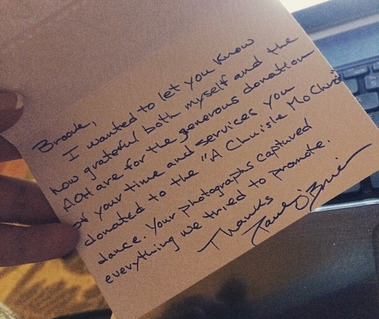 Brooke,
I wanted to let you know
how grateful both myself and the
AOH are for the generous donation
of your time and services you
donated to the "A Chuisle Mo Chroí"
dance. Your photographs captured
everything we tried to promote.
Thanks
O'Brien